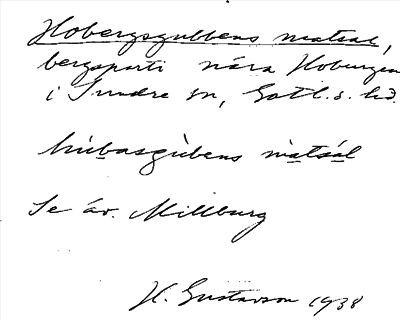 Hobergsgubbens matsal,
bergsparti nära Hoburgen
i Sundre sn, Gotl. s. hd.
hùbasgùbens màtsál
Se äv. Millburg
H. Gustavson 1938